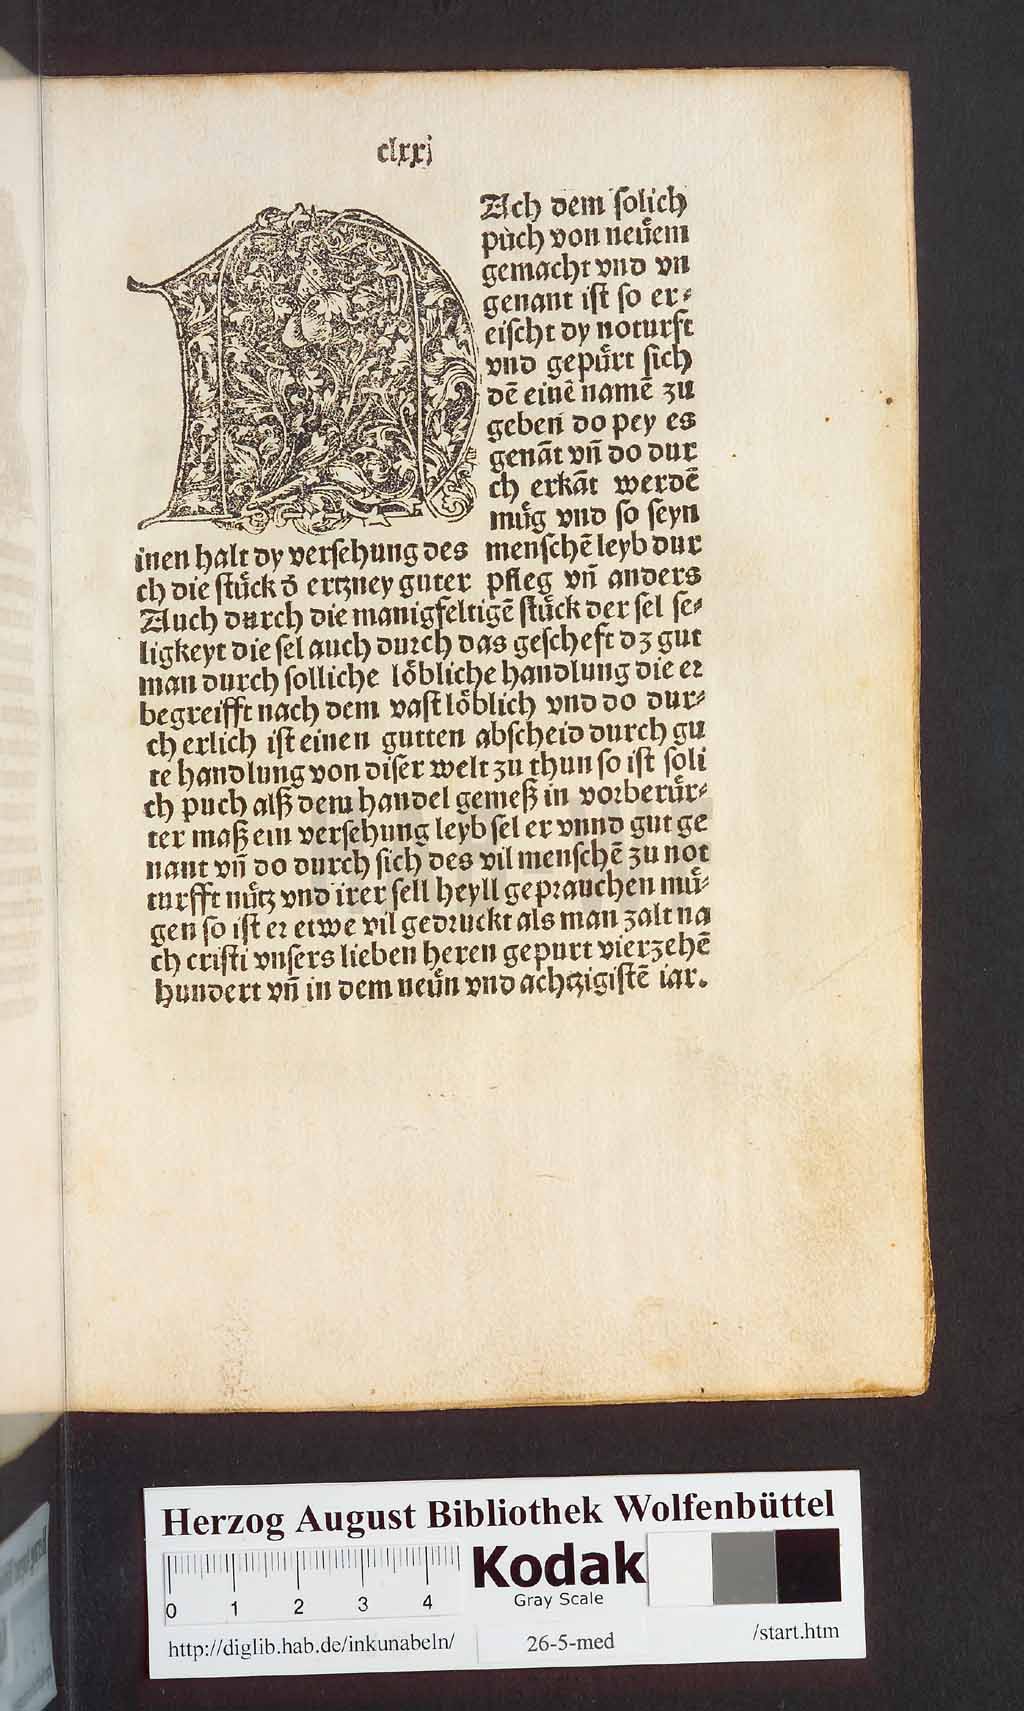 clxxj
NAch dem solich
pùch von neuͤem
gemacht vnd vn
genant ist so er⸗
eischt dy noturft
vnd gepuͤrt sich
dē einē namē zu
geben do pey es
genāt vn̄ do dur
ch erkāt werdē
muͤg vnd so seyn
innen halt dy versehung des menschē leyb dur
ch die stuͤck d̄ ertzney guter pfleg vn̄ anders
Auch durch die manigfeltigē stuͤck der sel se⸗
ligkeyt die sel auch durch das gescheft dz gut
man durch solliche loͤbliche handlung die er
begreifft nach dem vast loͤblich vnd do dur⸗
ch erlich ist einen gutten abscheid durch gu
te handlung von diser welt zu thun so ist soli
ch puch alß dem handel gemeß in vorberuͤr⸗
ter maß ein versehung leyb sel er vnnd gut ge
nant vn̄ do durch sich des vil menschē zu not
turfft nuͤtz vnd irer sell heyll geprauchen muͤ⸗
gen so ist er etwe vil gedruckt als man zalt na
ch cristi vnsers lieben heren gepurt vierzehē
hundert vn̄ in dem neuͤn vnd achtzigistē iar.
Herzog August Bibliothek Wolfenbüttel
Kodak
Gray Scale
0 1 2 3 4
http://diglib.hab.de/inkunabeln/ 26-5-med /start.htm